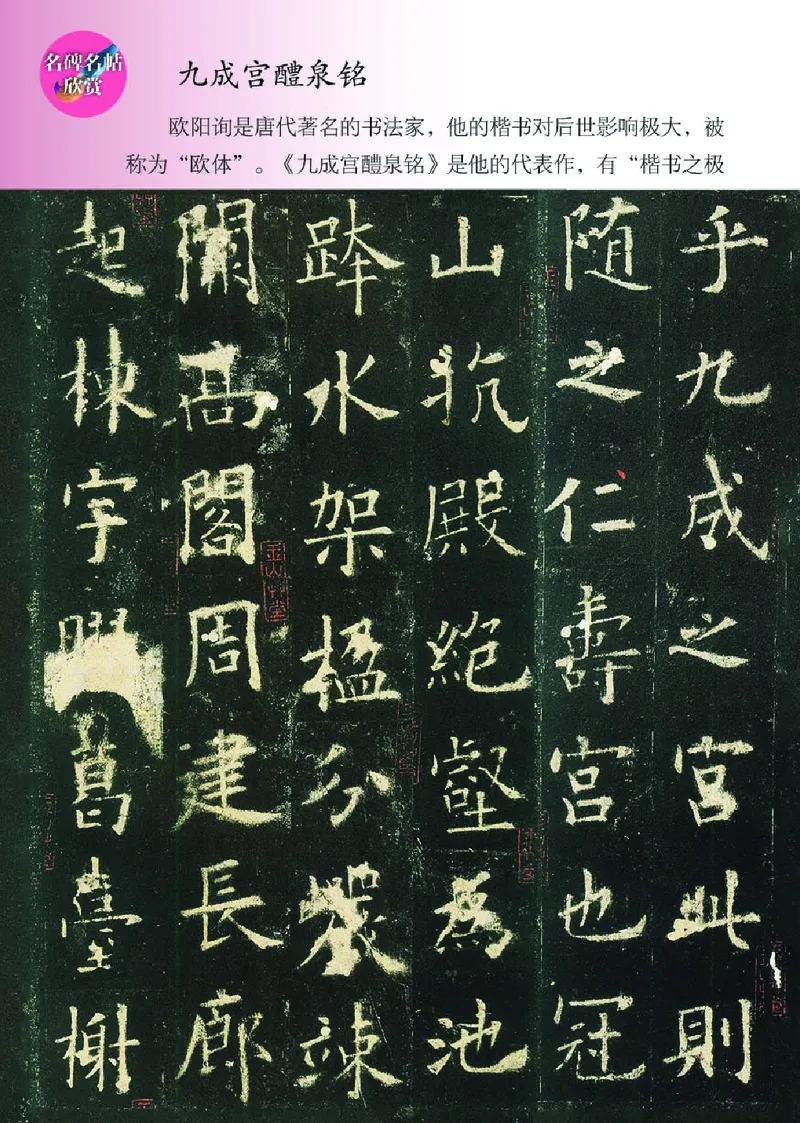 名碑名帖
欣赏
九成宫醴泉铭
欧阳询是唐代著名的书法家，他的楷书对后世影响极大，被
称为“欧体”。《九成宫醴泉铭》是他的代表作，有“楷书之极
乎九成之宫此則
随之仁壽宫也冠
山抗殿絶壑為池
跨水架楹分巖竦
闕高閣周建長廊
起棟宇膠葛臺榭